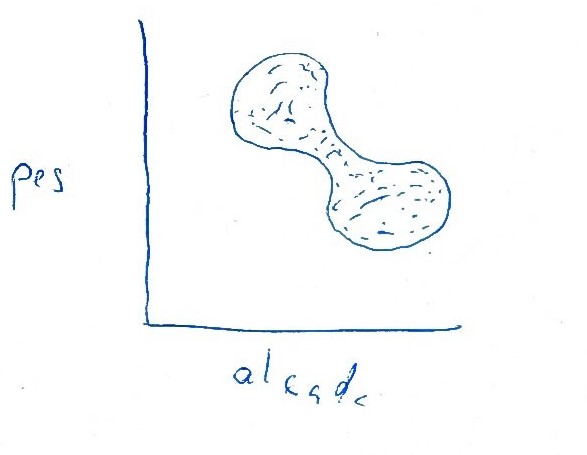 pes
alçada